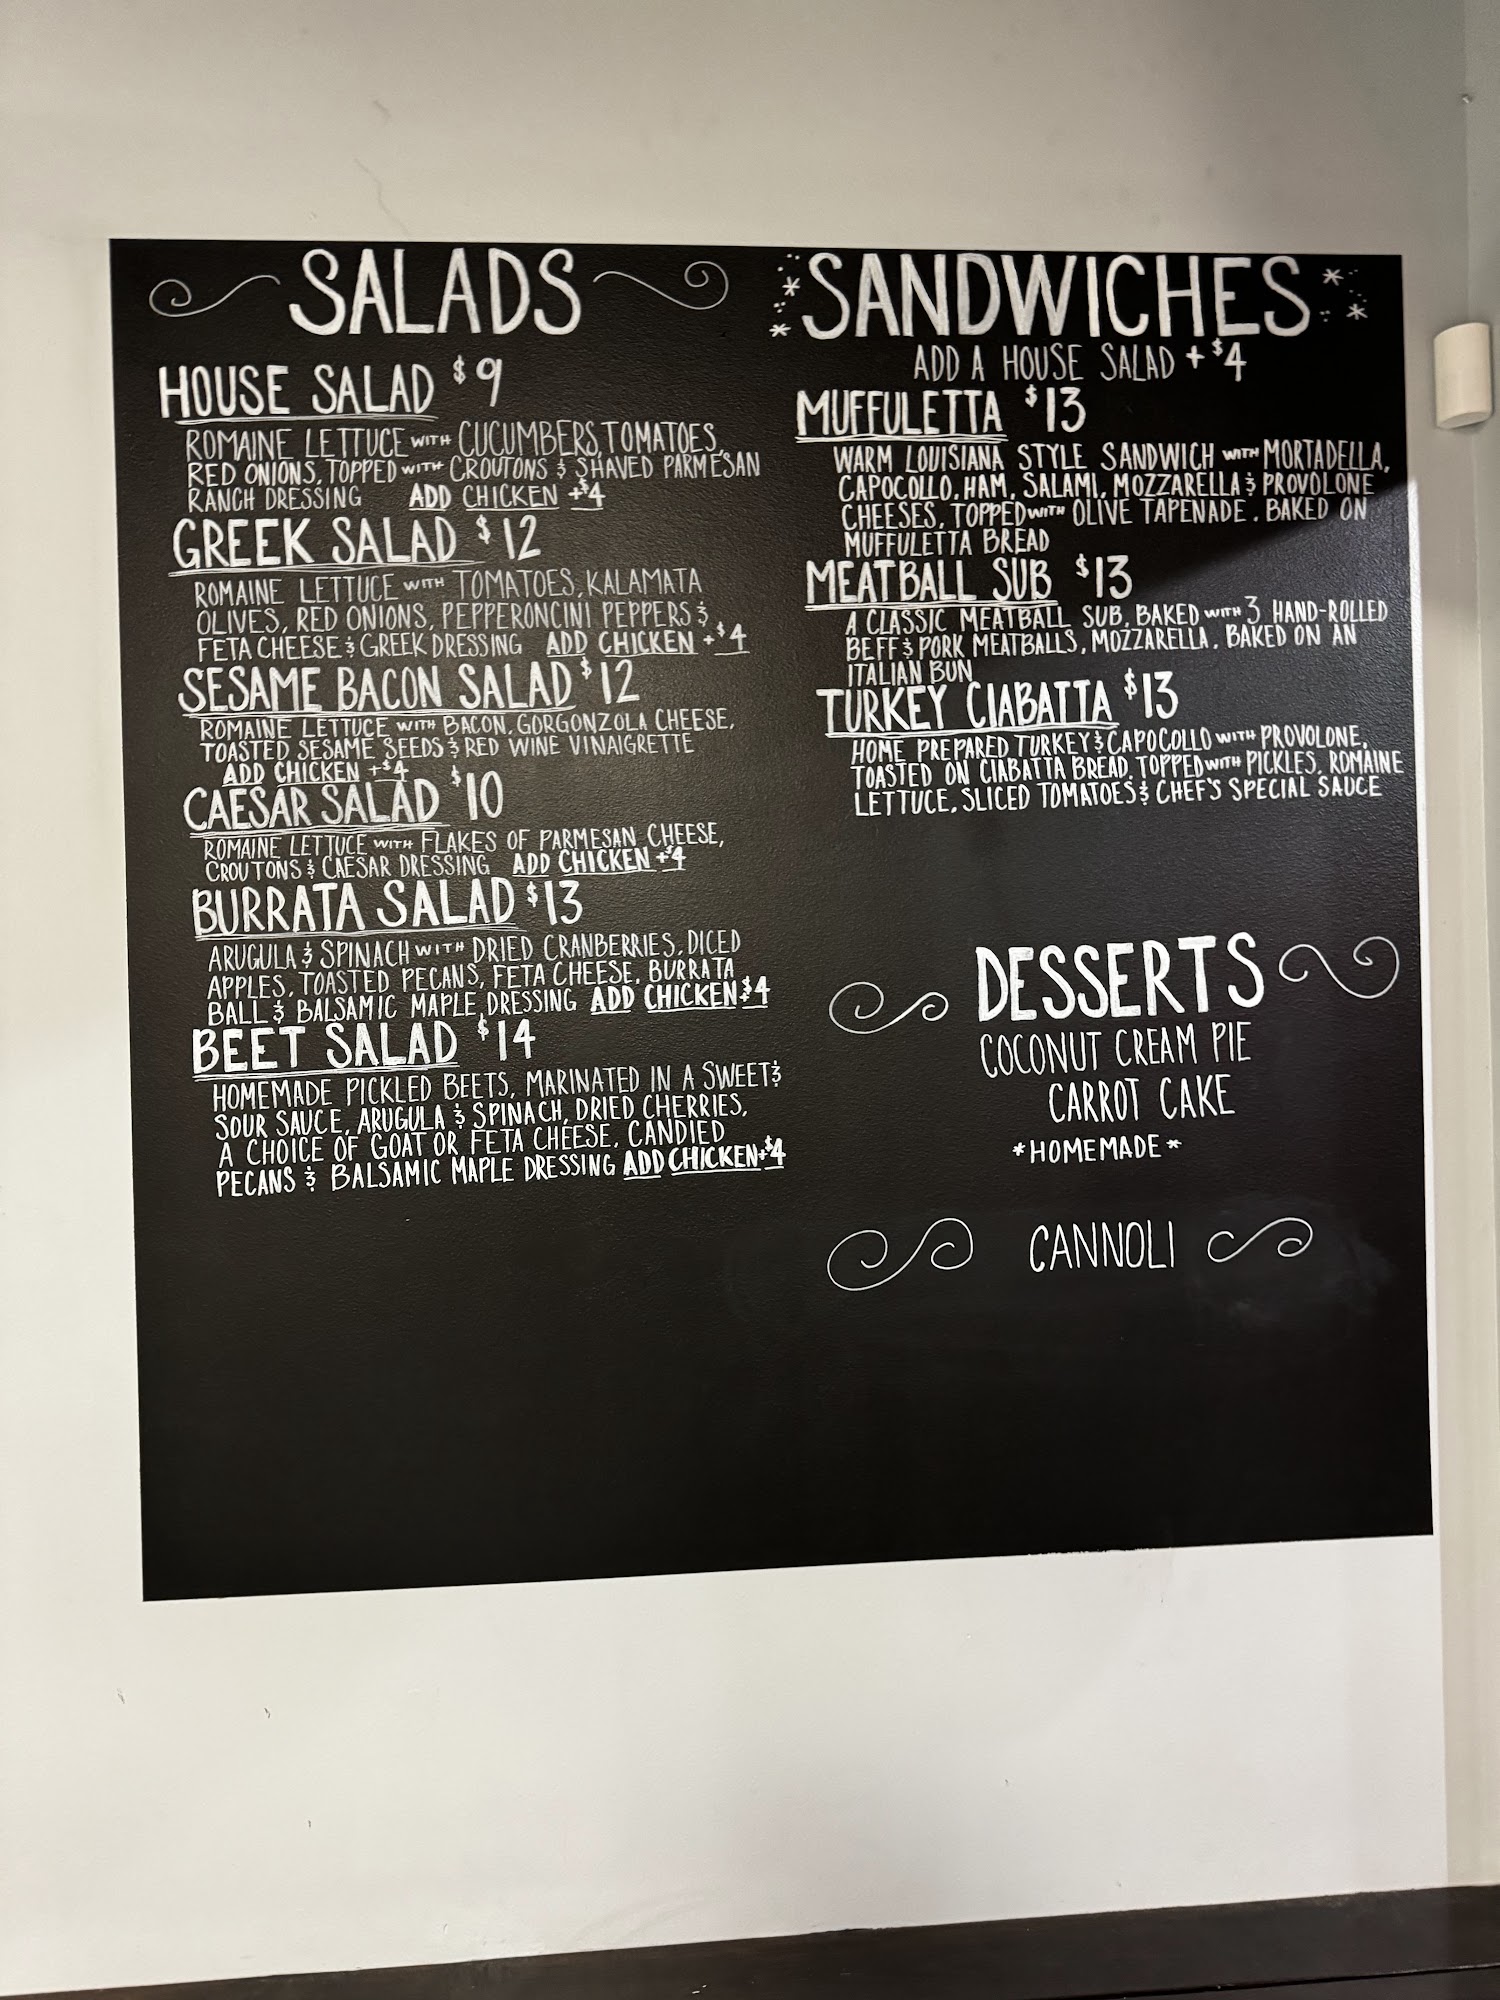 SALADS
HOUSE SALAD $9
ROMAINE LETTUCE WITH CUCUMBERS, TOMATOES,
RED ONIONS, TOPPED WITH CROUTONS & SHAVED PARMESAN
RANCH DRESSING ADD CHICKEN +$4
GREEK SALAD $12
ROMAINE LETTUCE WITH TOMATOES, KALAMATA
OLIVES, RED ONIONS, PEPPERONCINI PEPPERS &
FETA CHEESE & GREEK DRESSING ADD CHICKEN +$4
SESAME BACON SALAD $12
ROMAINE LETTUCE WITH BACON, GORGONZOLA CHEESE,
TOASTED SESAME SEEDS & RED WINE VINAIGRETTE
ADD CHICKEN +$4
CAESAR SALAD $10
ROMAINE LETTUCE WITH FLAKES OF PARMESAN CHEESE,
CROUTONS & CAESAR DRESSING ADD CHICKEN +$4
BURRATA SALAD $13
ARUGULA & SPINACH WITH DRIED CRANBERRIES, DICED
APPLES, TOASTED PECANS, FETA CHEESE, BURRATA
BALL & BALSAMIC MAPLE DRESSING ADD CHICKEN +$4
BEET SALAD $14
HOMEMADE PICKLED BEETS, MARINATED IN A SWEET &
SOUR SAUCE, ARUGULA & SPINACH, DRIED CHERRIES,
A CHOICE OF GOAT OR FETA CHEESE, CANDIED
PECANS & BALSAMIC MAPLE DRESSING ADD CHICKEN +$4
SANDWICHES
ADD A HOUSE SALAD +$4
MUFFULETTA $13
WARM LOUISIANA STYLE SANDWICH WITH MORTADELLA,
CAPOCOLLO, HAM, SALAMI, MOZZARELLA & PROVOLONE
CHEESES, TOPPED WITH OLIVE TAPENADE. BAKED ON
MUFFULETTA BREAD
MEATBALL SUB $13
A CLASSIC MEATBALL SUB, BAKED WITH 3 HAND-ROLLED
BEFF & PORK MEATBALLS, MOZZARELLA. BAKED ON AN
ITALIAN BUN
TURKEY CIABATTA $13
HOME PREPARED TURKEY & CAPOCOLLO WITH PROVOLONE,
TOASTED ON CIABATTA BREAD, TOPPED WITH PICKLES, ROMAINE
LETTUCE, SLICED TOMATOES & CHEF'S SPECIAL SAUCE
DESSERTS
COCONUT CREAM PIE
CARROT CAKE
*HOMEMADE*
CANNOLI